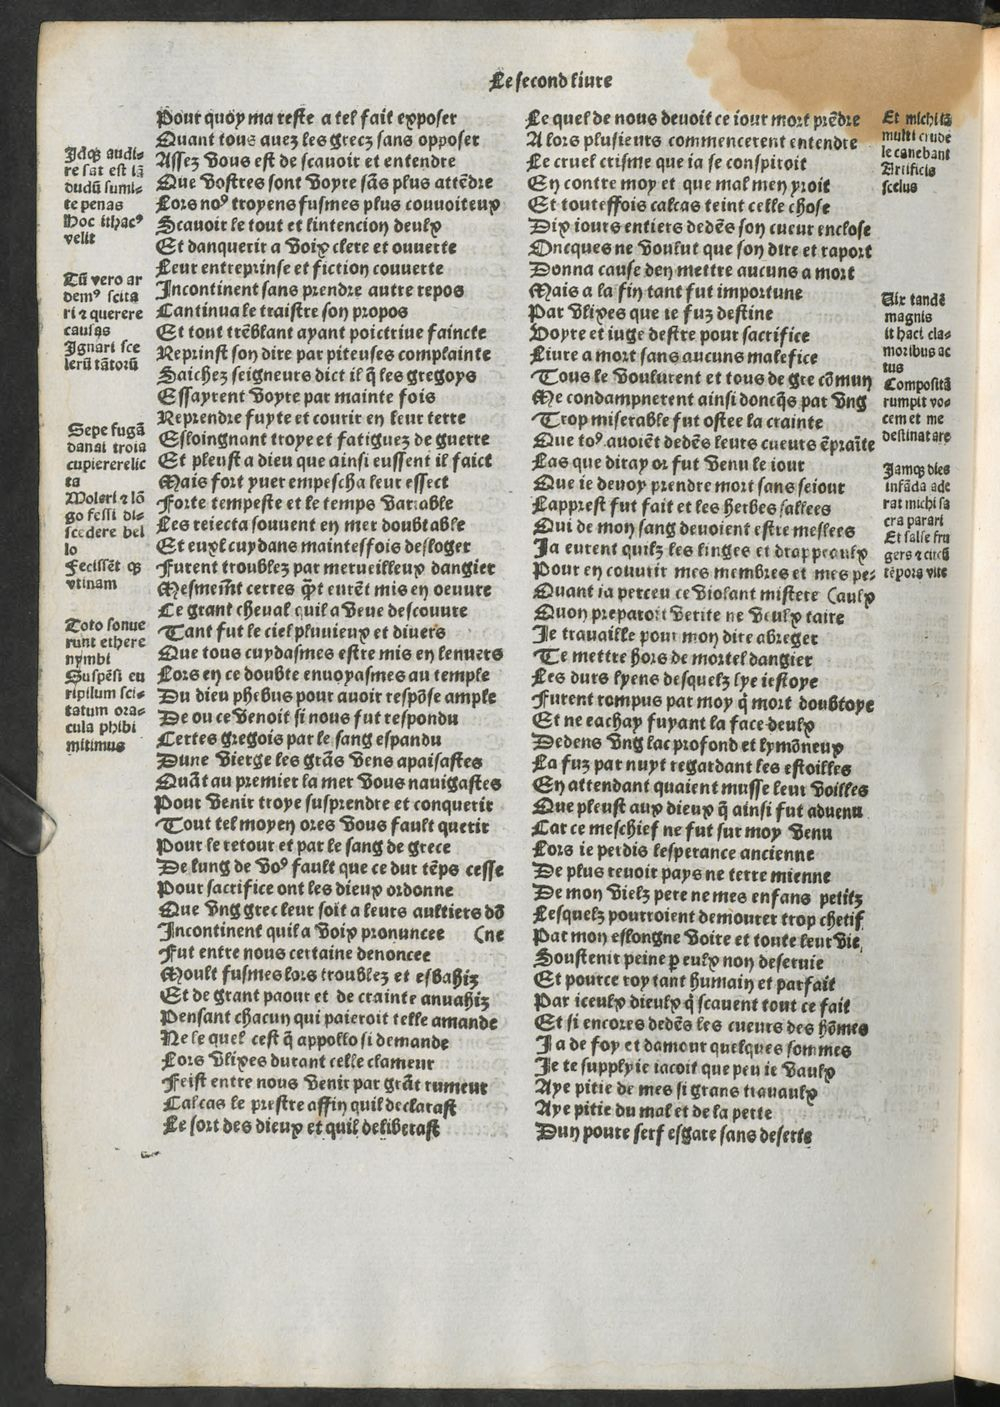 Le second liure
Idq̃ audi-
re sat est iã
dudũ sumi-
te penas
Hoc ithacꝰ
velit
Tũ vero ar
demꝰ scita
ri ⁊ querere
causas
Ignari sce
lerũ tãtorũ
Sepe fugã
danai troia
cupiererelic
ta
Moleri ⁊ lõ
go fessi di-
scedere bel
lo
Fecissẽt q̃
vtinam
Toto sonue
runt ethere
nymbi
Suspẽsi eu
ripilum sci-
tatum ora-
cula phibi
mitimus
Pour quoy ma teste a tel fait exposer
Quant tous auez les grecz sans opposer
Assez vous est de scauoir et entendre
Que vostres sont voyre sãs plus attẽdre
Lors noꝰ troyens fusmes plus conuoiteux
Scauoir le tout et lintencion deulx
Et danquerir a voix clere et ouuerte
Leur entreprinse et fiction couuerte
Incontinent sans prendre autre repos
Cantinua le traistre son propos
Et tout trẽblant ayant poictrine faincte
Reprinst son dire par piteuses complainte
Saichez seigneurs dict il q̃ les gregoys
Essayrent voyre par mainte fois
Reprendre fuyte et courir en leur terre
Esloingnant troye et fatiguez de guerre
Et pleust a dieu que ainsi eussent il faict
Mais fort yuer empescha leur effect
Forte tempeste et le temps variable
Les reiecta souuent en mer doubtable
Et eulx cuydans maintesfois desloger
Furent troublez par merueilleux dangier
Mesmemẽt certes q̃t eurẽt mis en oeuure
Ce grant cheval quil a veue descouure
Tant fut le ciel pluuieux et diuers
Que tous cuydasmes estre mis en lenuers
Lors en ce doubte enuoyasmes au temple
Du dieu phebus pour auoir respõse ample
De ou ce venoit si nous fut respondu
Certes gregois par le sang espandu
Dune vierge les grãs vens apaisastes
Quãt au premier la mer vous nauigastes
Pour venir troye susprendre et conquerir
Tout tel moyen ores vous fault querir
Pour le retour et par le sang de grece
De lung de voꝰ fault que ce dur tẽps cesse
Pour sacrifice ont les dieux ordonne
Que vng grec leur soit a leurs aultiers dõ
Incontinent quil a voix pronuncee (ne
Fut entre nous certaine denoncee
Moult fusmes lors troublez et esbahiz
Et de grant paour et de crainte anuahiz
Pensant chacun qui paieroit telle amande
Ne le quel cest q̃ appollo si demande
Lors vlixes durant celle clameur
Feist entre nous venir par grãt rumeur
Calcas le prestre affin quil declarast
Le sort des dieux et quil deliberast
Le quel de nous deuoit ce iour mort prẽdre
A lors plusieurs commencerent entendre
Le cruel crisme que ia se conspiroit
En contre moy et que mal men yroit
Et touteffois calcas teint celle chose
Dix iours entiers dedẽs son cueur enclose
Oncques ne voulut que son dire et raport
Donna cause den mettre aucuns a mort
Mais a la fin tant fut importune
Par vlixes que ie fuz destine
Voyre et iuge destre pour sacrifice
Liure a mort sans aucuns malefice
Tous le voulurent et tous de gre cõmun
Me condampnerent ainsi doncq̃s par vng
Trop miserable fut ostee la crainte
Que toꝰ auoiẽt dedẽs leurs cueurs ẽpraĩte
Las que diray or fut venu le iour
Que ie deuoy prendre mort sans seiour
Lapprest fut fait et les herbes sallees
Qui de mon sang deuoient estre meslees
Ja eurent quilz les linges et drappeaulx
Pour en couurir mes membres et mes pe-
Quant ia perceu ce violant mistere (aulx
Quon preparoit verite ne veulx taire
Je trauaille pour mon dire abreger
Te mettre hors de mortel dangier
Les durs lyens desquelz lye iestoye
Furent rompus par moy q̃ mort doubtoye
Et ne eachay fuyant la face deulx
Dedens vng lac profond et lymõneux
La fuz par nuyt regardant les estoilles
En attendant quaient musse leur voilles
Que pleust aux dieux q̃ ainsi fut aduenu
Car ce meschief ne fut sur moy venu
Lors ie perdis lesperance ancienne
De plus reuoir pays ne terre mienne
De mon vielz pere ne mes enfans petitz
Lesquelz pourroient demourer trop chetif
Par mon eslongne voire et toute leur vie
Soustenir peine ꝑ eulx non deseruie
Et pource roy tant humain et parfait
Par iceulx dieulx q̃ scauent tout ce fait
Et si encores dedẽs les cueurs des hõmes
Ja de foy et damour quelques sommes
Je te supply ie iacoit que peu ie vaulx
Aye pitie de mes si grans trauaulx
Aye pitie du mal et de la perte
Dun poure serf esgare sans deserte
Et michi iã
multi crude
le canebant
Artificis
scelus
Uix tandẽ
magnis
it haci cla-
moribus ac
tus
Compositã
rumpit vo-
cem et me
destinat are
Jamq̃ dies
infãda ade
rat michi sa
cra parari
Et salse fru
gers ⁊ circũ
tẽpora vite